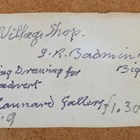 Village Shop.
S.R. Badmin
ing Drawing for Big
advert
annard Gallery £1.30
9